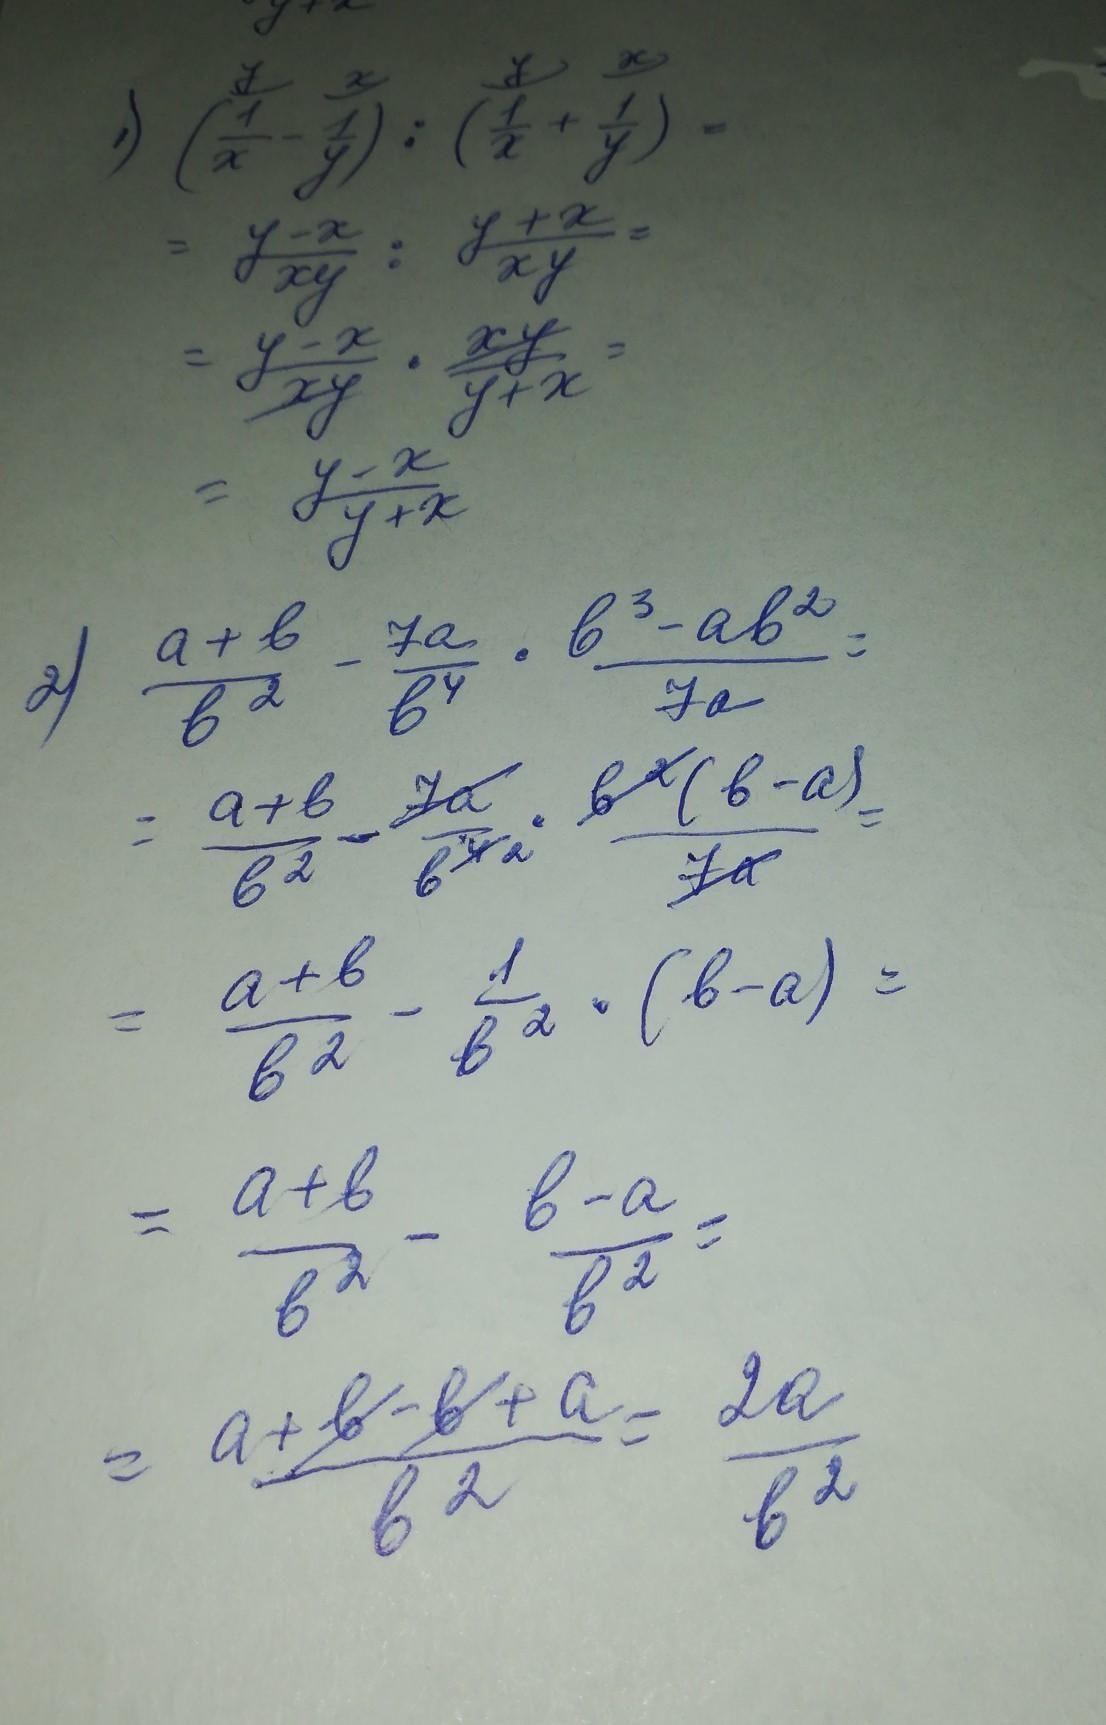 y+x
1) (1/x^y - 1/y^x) : (1/x^y + 1/y^x) =
= (y-x)/(xy) : (y+x)/(xy) =
= (y-x)/(xy) · (xy)/(y+x) =
= (y-x)/(y+x)
2) (a+b)/b² - 7a/b⁴ · (b³-ab²)/7a =
= (a+b)/b² - 7a/b⁴ ² · b²(b-a)/7a =
= (a+b)/b² - 1/b² · (b-a) =
= (a+b)/b² - (b-a)/b² =
= (a+b-b+a)/b² = 2a/b²